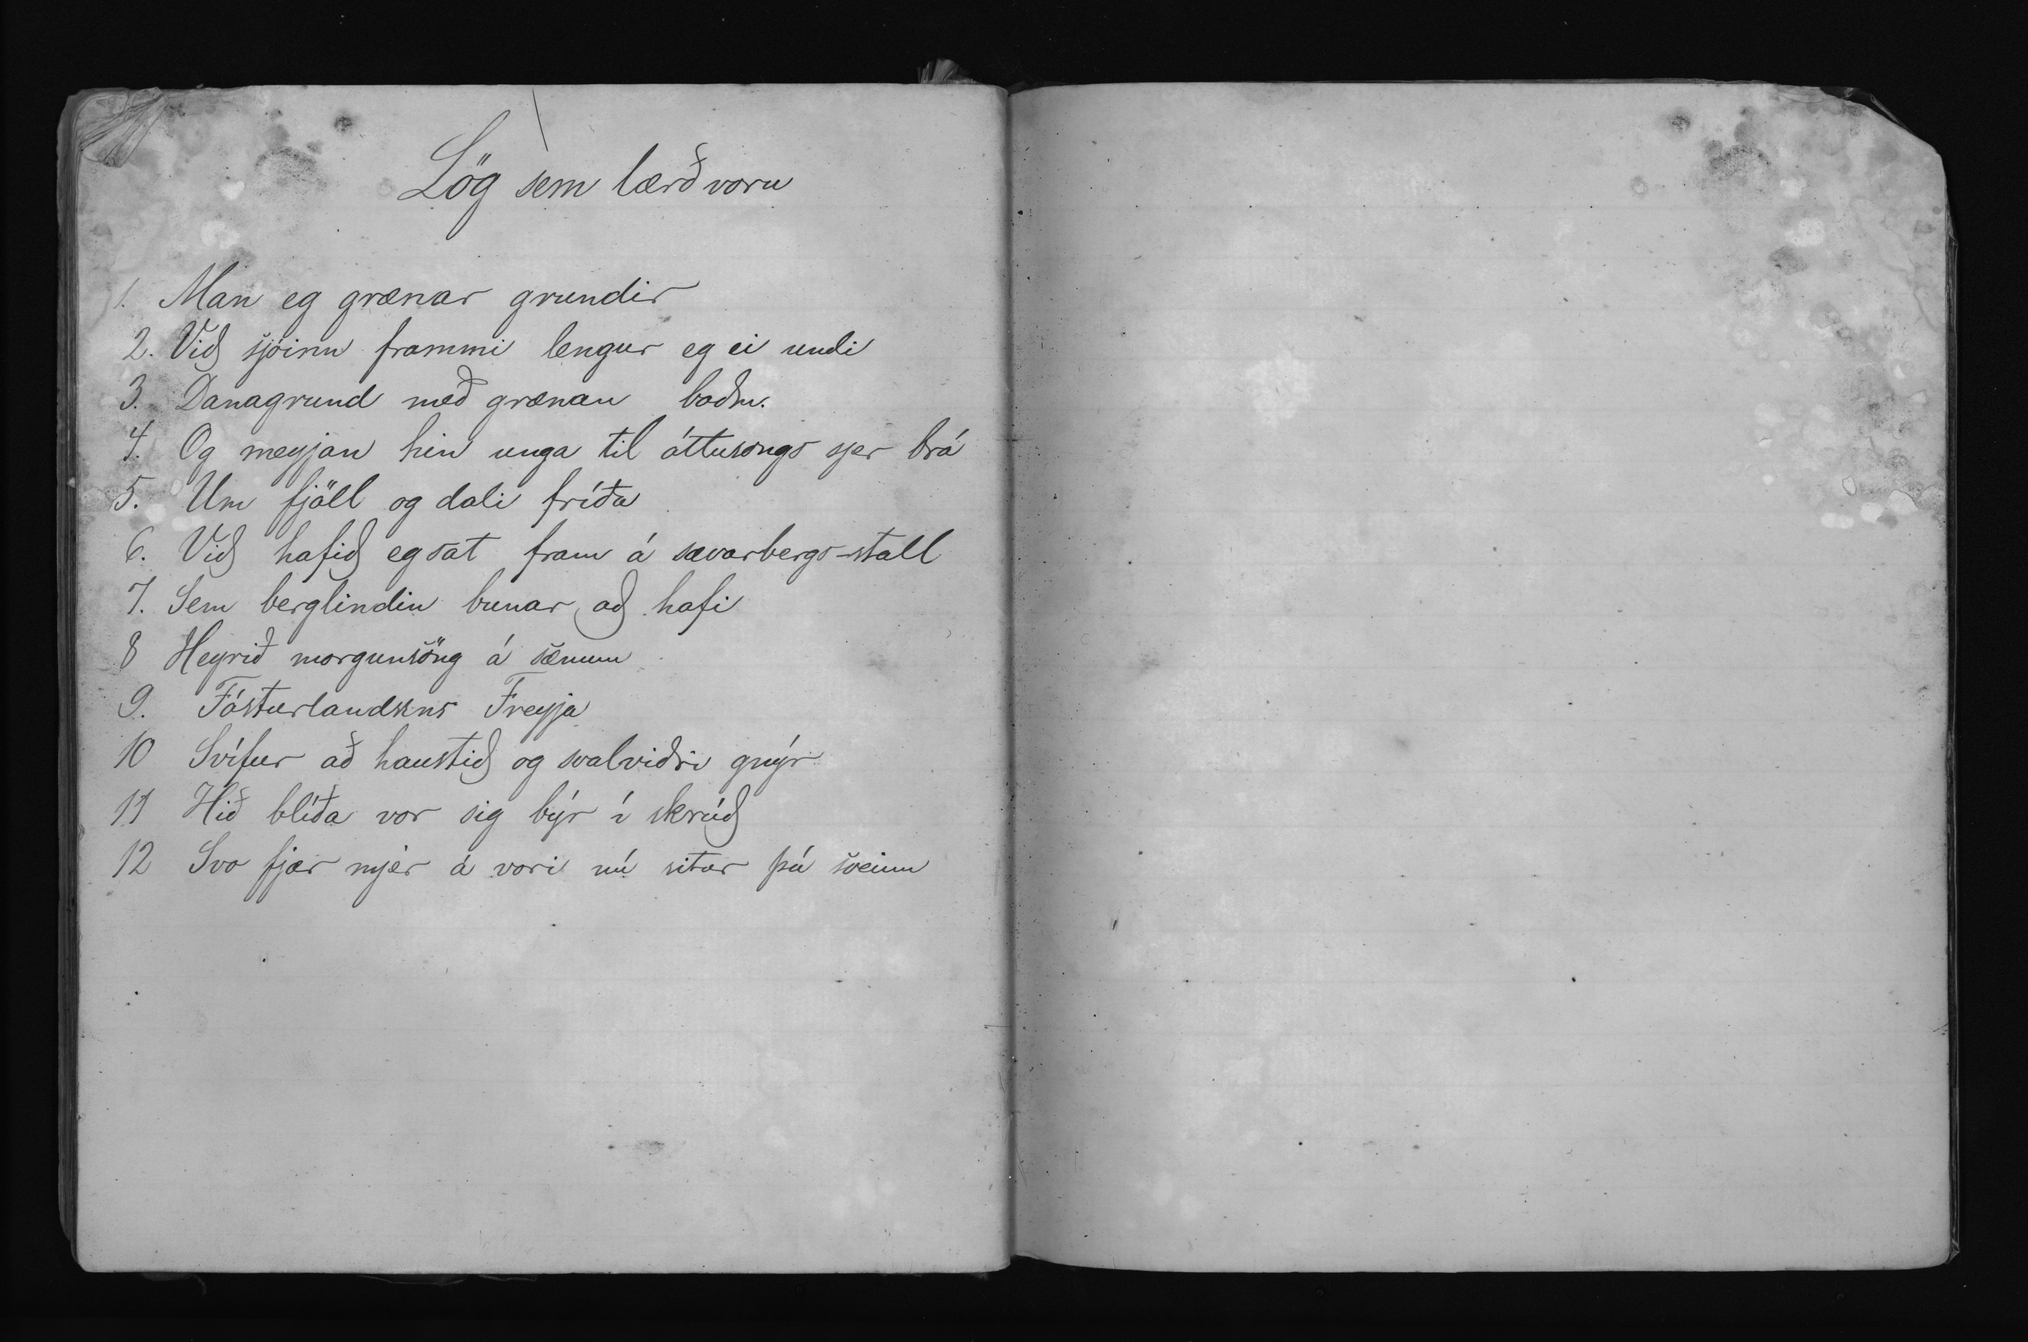 Lög sem lærð voru
1. Man eg grænar grundir
2. Við sjóinn frammi lengur eg ei undi
3. Danagrund með grænan baðm.
4. Og meyjan hin unga til óttusöngs sjer brá
5. Um fjöll og dali fríða
6. Við hafið eg sat fram á sævarbergs-stall
7. Sem berglindin bunar að hafi
8 Heyrið morgunsöng á sænum
9. Fósturlandsins Freyja
10 Svífur að haustið og svalviðri gnýr
11 Hið blíða vor sig býr í skrúð
12 Svo fjær mjér á vori nú situr þú sveinn